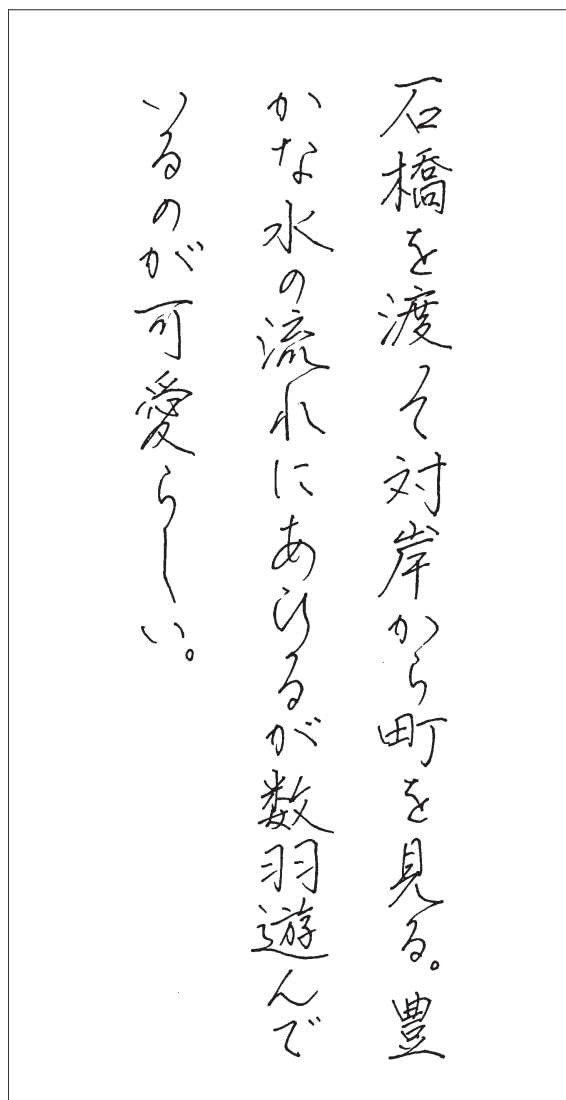 石橋を渡って対岸から町を見る。豊
かな水の流れにあひるが数羽遊んで
いるのが可愛らしい。